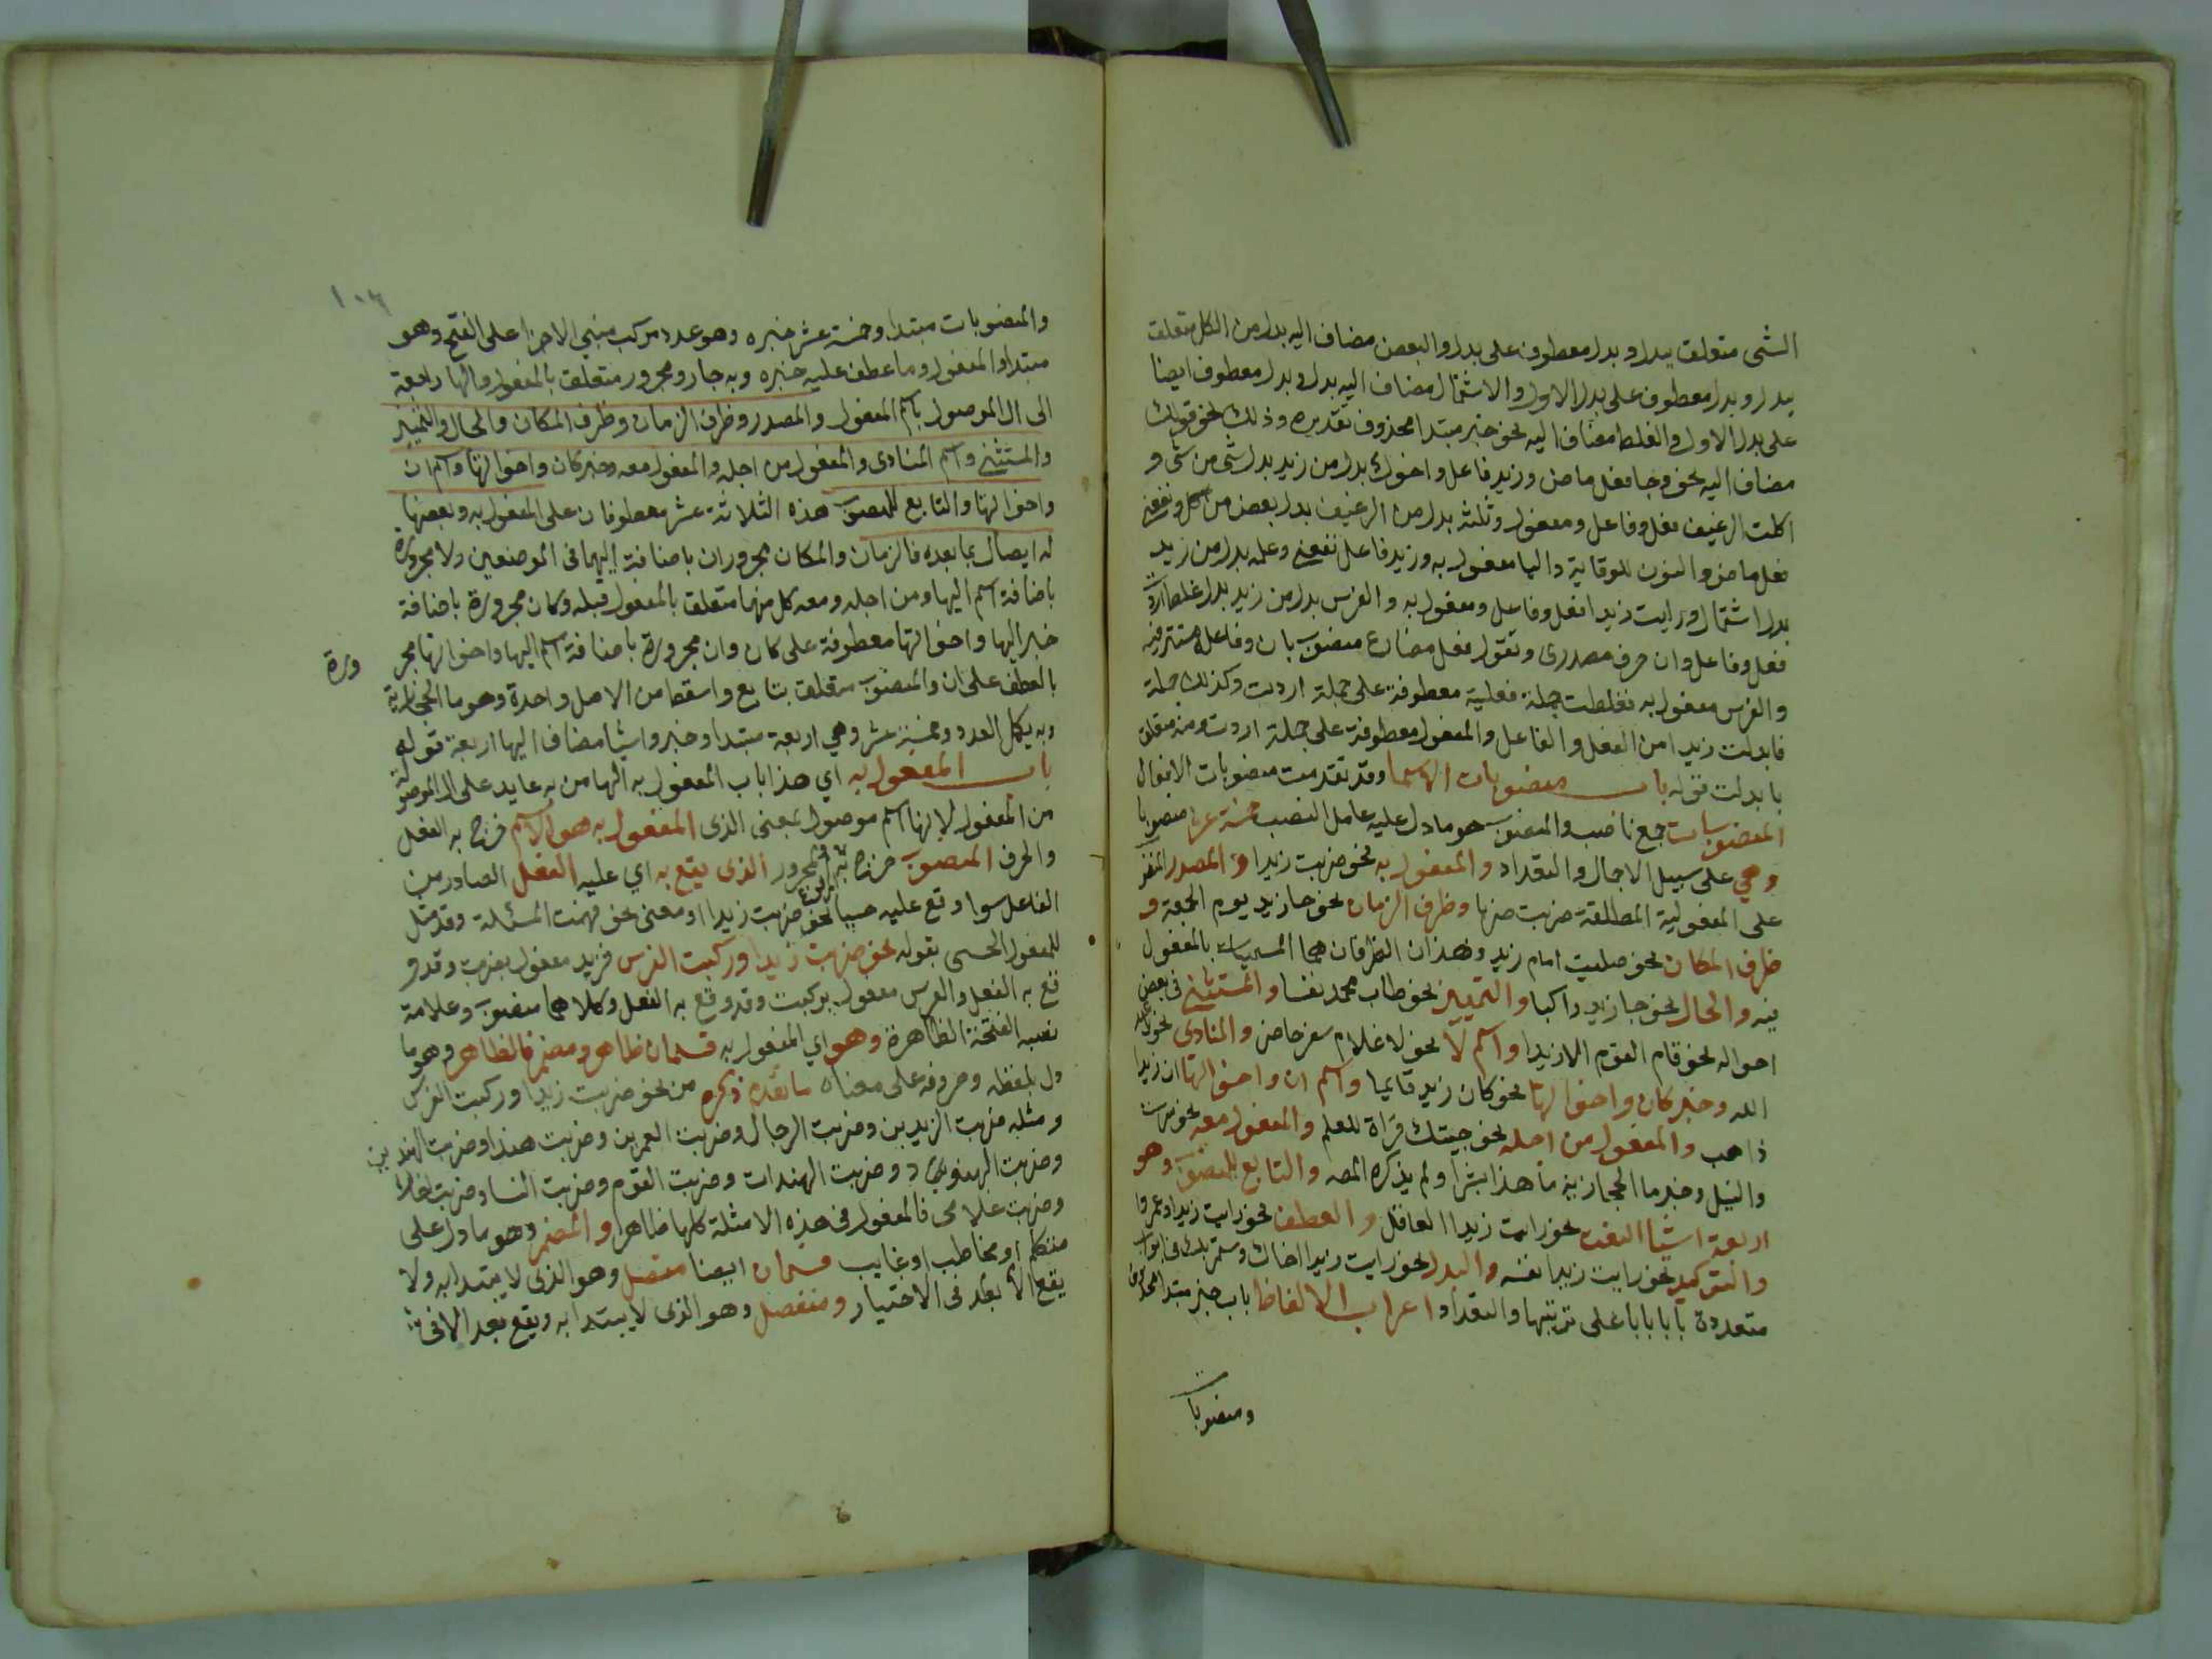 الشى متعلق ببدل وبدل معطوف على بدل والبعض مضاف اليه بدل من الكل متعلق
ببدل وبدل معطوف على بدل الاول والاشتمال مضاف اليه بدل وبدل معطوف ايضا
على بدل الاول والغلط مضاف اليه نحو خبر مبتدا محذوف تقديره وذلك نحو قولك
مضاف اليه نحو وجا فعل ماض وزيد فاعل واخوك بدل من زيد بدل شى من شى و
اكلت الرغيف فعل وفاعل ومفعول وثلثه بدل من الرغيف بدل بعض من كل ونفعنى
فعل ماض والنون للوقاية واليا مفعول به وزيد فاعل نفعنى وعلمه بدل من زيد
بدل اشتمال ورايت زيدا فعل وفاعل ومفعول به والفرس بدل من زيد بدل غلط اردت
فعل وفاعل وان حرف مصدرى وتقول فعل مضارع منصوب بان وفاعله مستتر فيه
والفرس مفعول به فغلطت جملة فعلية معطوفة على جملة اردت وكذلك جملة
فابدلت زيدا من الفعل والفاعل والمفعول معطوفة على جملة اردت ومنه متعلق
بابدلت قوله باب منصوبات الاسما وقد تقدمت منصوبات الافعال
المنصوبات جمع ناصب والمنصوب هو مادل عليه عامل النصب خمسة عشر منصوبا
وهي على سبيل الاجمال والتعداد والمفعول به نحو ضربت زيدا والمصدر
على المفعولية المطلقة ضربت ضربا وظرف الزمان نحو جا زيد يوم الجمعة و
ظرف المكان نحو صليت امام زيد وهذان الظرفان هما المسميان بالمفعول
فيه والحال نحو جا زيد راكبا والتمييز نحو طاب محمد نفسا والمستثنى في بعض
احواله نحو قام القوم الا زيدا واسم لا نحو لا غلام سفر حاضر والمنادى نحو
الله وخبر كان واخواتها نحو كان زيد قايما واسم ان واخواتها ان زيدا
ذاهب والمفعول من اجله نحو جيتك قراة للعلم والمفعول معه نحو سرت
والنيل وخبر ما الحجازية ما هذا بشرا ولم يذكره المصه والتابع للمنصوب وهو
اربعة اشيا النعت نحو رايت زيدا العاقل والعطف نحو رايت زيدا وعمروا
والتوكيد نحو رايت زيدا نفسه والبدل نحو رايت زيدا اخاك وستمر بك في ابواب
متعددة بابا بابا على ترتيبها والتعداد اعراب الالفاظ باب خبر مبتدا محذوف
ومنصوبات
١٠٦
والمنصوبات مبتدا وخمسة عشر خبره وهو عدد مركب مبنى الاجزا على الفتح وهو
مبتدا والمفعول وما عطف عليه خبره وبه جار ومجرور متعلق بالمفعول والها راجعة
الى ال الموصول باسم المفعول والمصدر وظرف الزمان وظرف المكان والحال والتمييز
والمستثنى واسم المنادى والمفعول من اجله والمفعول معه وخبر كان واخواتها واسم ان
واخواتها والتابع للمنصوب هذه الثلاثة عشر معطوفان على المفعول به وبعضها
له ايصال بما بعده فالزمان والمكان مجروران باضافة اليهما فى الموضعين ولا مجرورة
باضافة اسم اليها ومن اجله ومعه كل منهما متعلق بالمفعول قبله وكان مجرورة باضافة
خبر اليها واخواتها معطوفة على كان وان مجرورة باضافة اسم اليها واخواتها مجر
ورة
بالعطف على ان والمنصوب متعلق بتابع واسقط من الاصل واحدة وهو ما الحجازية
وبه يكمل العدد وخمسة عشر وهي اربعة مبتدا وخبر واشيا مضاف اليها اربعة قوله
باب المفعول به اي هذا باب المفعول به الها من به عايد على ال الموصولة
من المفعول لانها اسم موصول بمعنى الذى المفعول به هو الاسم خرج به الفعل
والحرف المنصوب خرج به المرفوع والمجرور الذى يقع به اي عليه الفعل الصادر من
الفاعل سوا وقع عليه حسيا نحو ضربت زيدا او معنى نحو فهمت المسئلة وقد مثل
للمفعول الحسى بقوله نحو ضربت زيدا وركبت الفرس فزيد مفعول بضرب وقد و
قع به الفعل والفرس مفعول بركبت وقد وقع به الفعل وكلاهما منصوب وعلامة
نصبه الفتحة الظاهرة وهو اي المفعول به قسمان ظاهر ومضمر فالظاهر وهو ما
دل بلفظه وحروفه على معناه ما تقدم ذكره من نحو ضربت زيدا وركبت الفرس
ومثله ضربت الزيدين وضربت الرجال وضربت العمرين وضربت هندا وضربت الهندين
وضربت الهنود وضربت الهندات وضربت القوم وضربت النسا وضربت
وضربت غلامى فالمفعول فى هذه الامثلة كلها ظاهر والمضمر وهو ما دل على
متكلم او مخاطب او غايب قسمان ايضا متصل وهو الذى لا يبتدا به ولا
يقع الا بعد فى الاختيار ومنفصل وهو الذى لا يبتدا به ويقع بعد الا فى